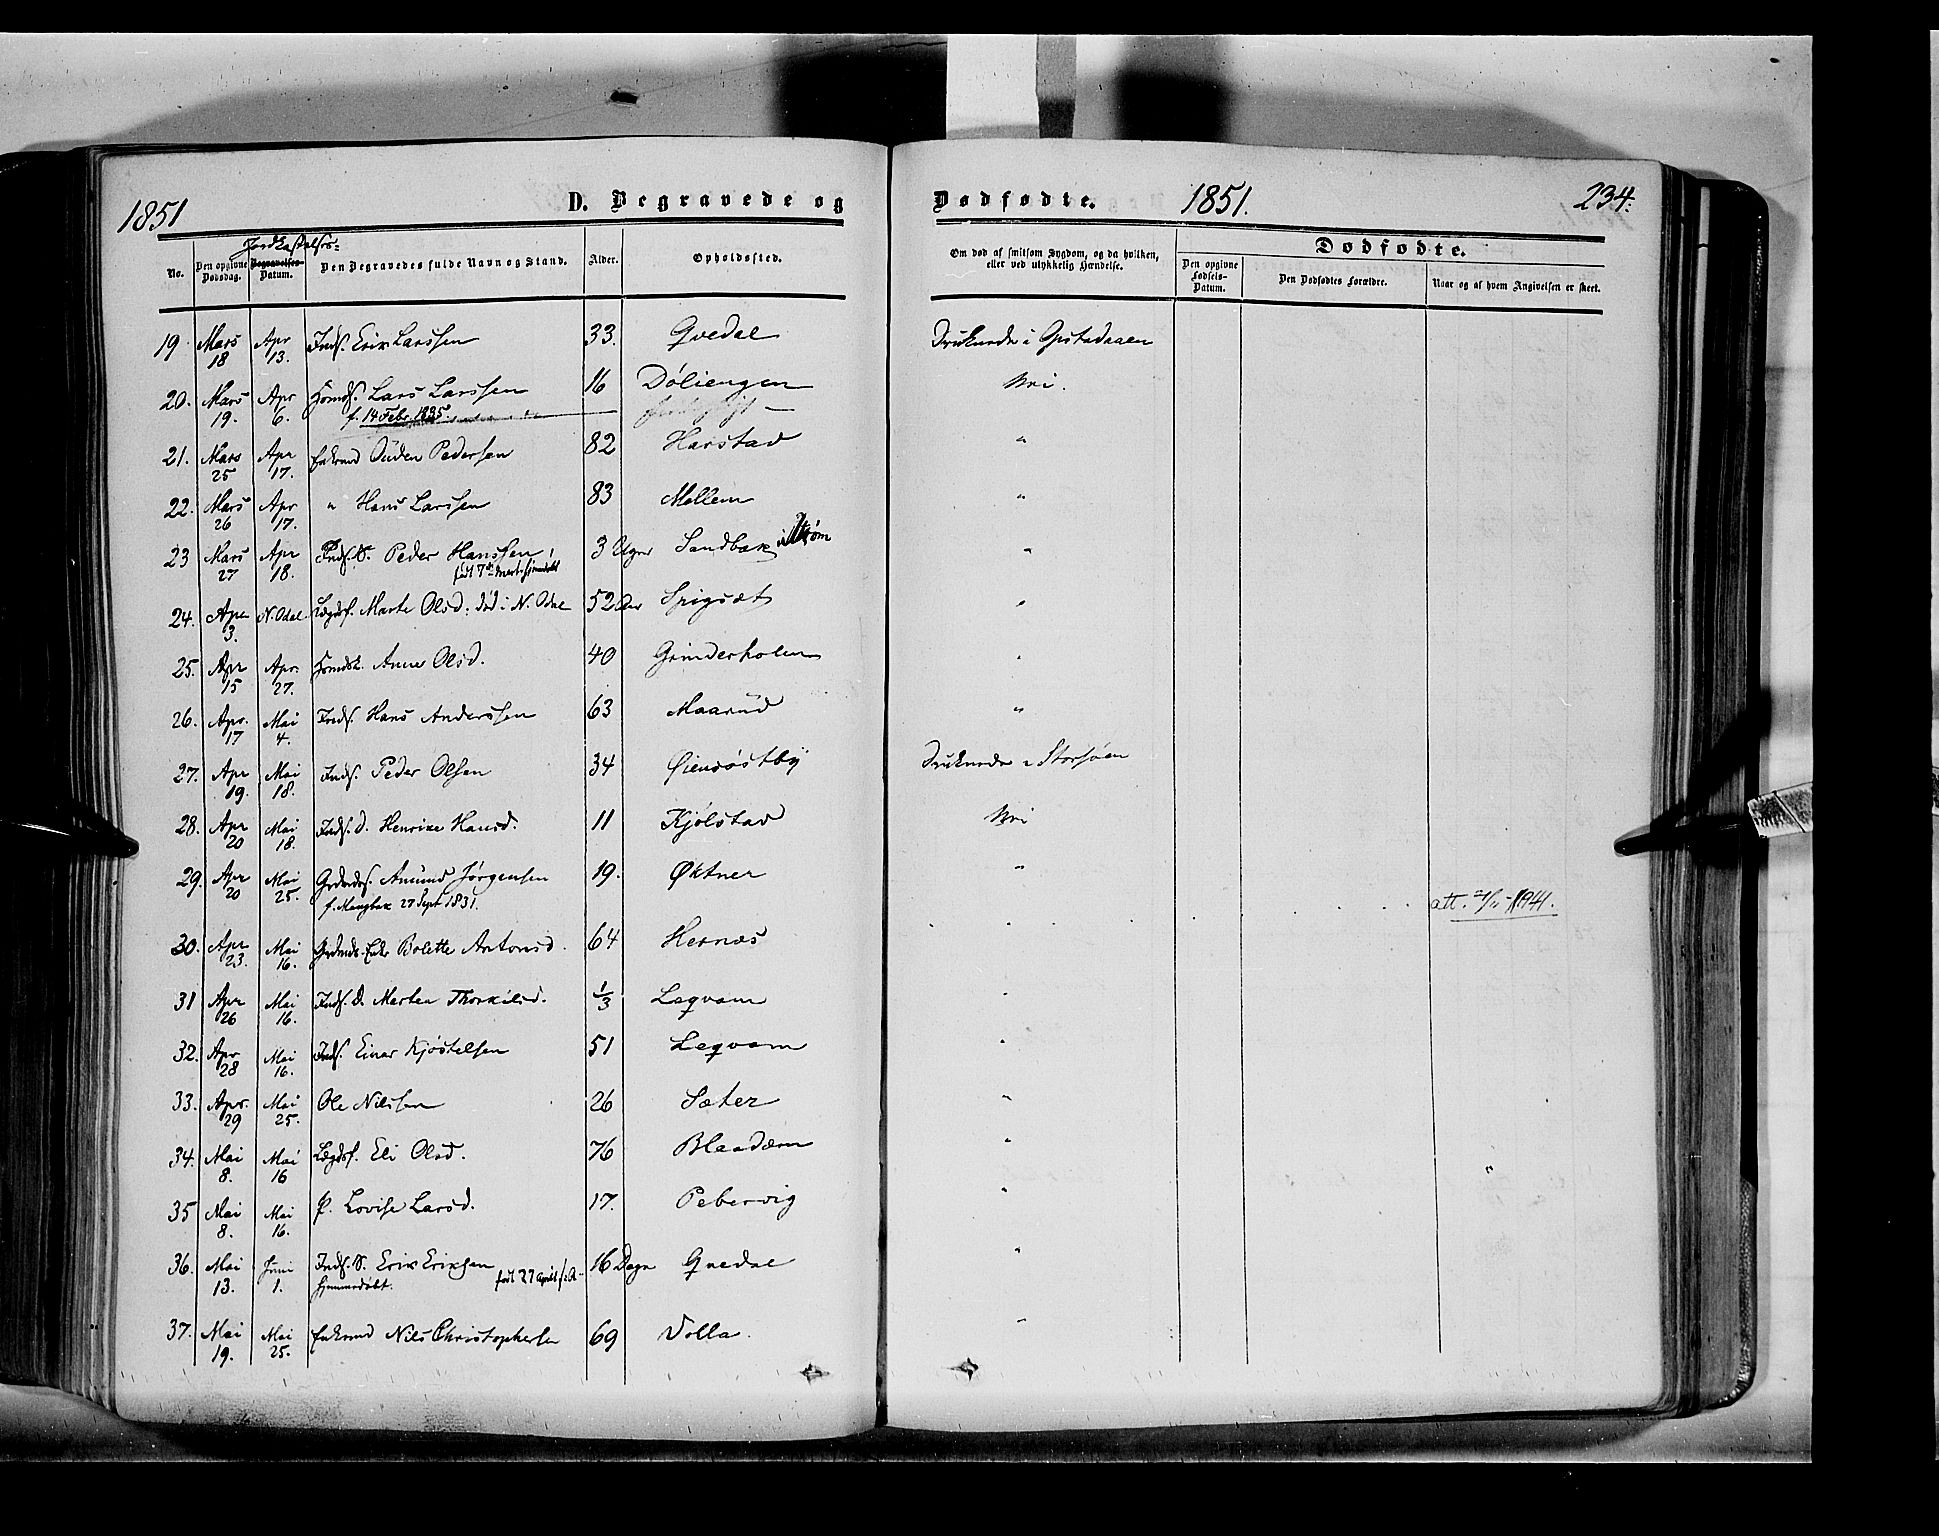 1851
D. Begravede og
Dødfødte.
1851.
234.
Jordkastelses-
No.
Den opgivne Dødsdag.
Begravelses-Datum.
Den Begravedes fulde Navn og Stand.
Alder.
Opholdssted.
Om død af smitsom Sygdom, og da hvilken, eller ved ulykkelig Hændelse.
Dødfødte.
Den opgivne Fødsels-Datum.
Den Dødfødtes Forældre.
Naar og af hvem Angivelsen er skeet.
19 Mars 18 Apr 13. Inds. Erik Larssen 33. Qvedal Druknede i Opstadaaen
20. Mars 19. Apr 6. Lars Larssen 16 Døliengen Nei.
f. 14 Febr. 1835.
21. Mars 25 Apr 17. Enkemd Ouden Pedersen 82 Harstad "
22. Mars 26 Apr 17. " Hans Larssen 83 Mellem "
23 Mars 27 Apr 18. Inds. S. Peder Hanssen, 3 Uger Sandbak i Strøm "
født 7de Mart. hjemmedøbt
24. Apr 3. N. Odal. Lægdsl. Marte Olsd. død i N. Odal 52 Aar Spigsæt "
25. Apr 15 Apr. 27. Anne Olsd. 40 Grinderholen "
26. Apr. 17 Mai 4. Inds. Hans Anderssen 63 Maarud "
27. Apr 19. Mai 18. Inds. Peder Olsen 34 Øiensøstby Druknede i Storsøen
28. Apr 20 Mai 18. Inds. D. Henrike Hansd. 11 Kjølstad Nei
29. Apr 20 Mai 25. Amund Jørgensen 19. Øktner "
f. Mangbak 27 Sept 1831.
att. 1941.
30. Apr 23. Mai 16. Grdmds. Enke Bolette Antonsd. 64 Hernæs "
31 Apr 26 Mai 16. Inds. D. Marten Thorkilsd. 1/3 Leqvam "
32. Apr 28 Mai 16. Inds. Einar Kjøstelsen 51 Leqvam "
33. Apr. 29 Mai 25. Ole Nilssen 26 Sæter "
34. Mai 8. Mai 16 Lægdsl. Eli Olsd. 76 Blaadam " "
35 Mai 8. Mai 16. P. Lovise Larsd. 17. Pebervig "
36. Mai 13. Juni 1. Inds. S. Erik Eriksen 16 Dage Qvedal "
hjemmedøbt. født 27 April s. A.
37. Mai 19. Mai 25. Enkemd Nils Christophersen 69 Volla. "